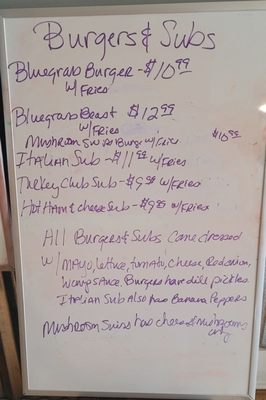 Burgers & Subs
Bluegrass Burger - $10.99
w/ Fries
Bluegrass Beast $12.99
w/ Fries
Mushroom Swiss Burger w/ Fries $10.99
Italian Sub - $11.99 w/ Fries
Turkey Club Sub - $9.99 w/ Fries
Hot Ham & cheese Sub - $9.99 w/ Fries
All Burgers & Subs Come dressed
w/ MAyo, lettuce, tomato, cheese, Red onion,
Wang sauce. Burgers have dill pickles.
Italian Sub Also has Banana Peppers
Mushroom Swiss has cheese & mushrooms
only